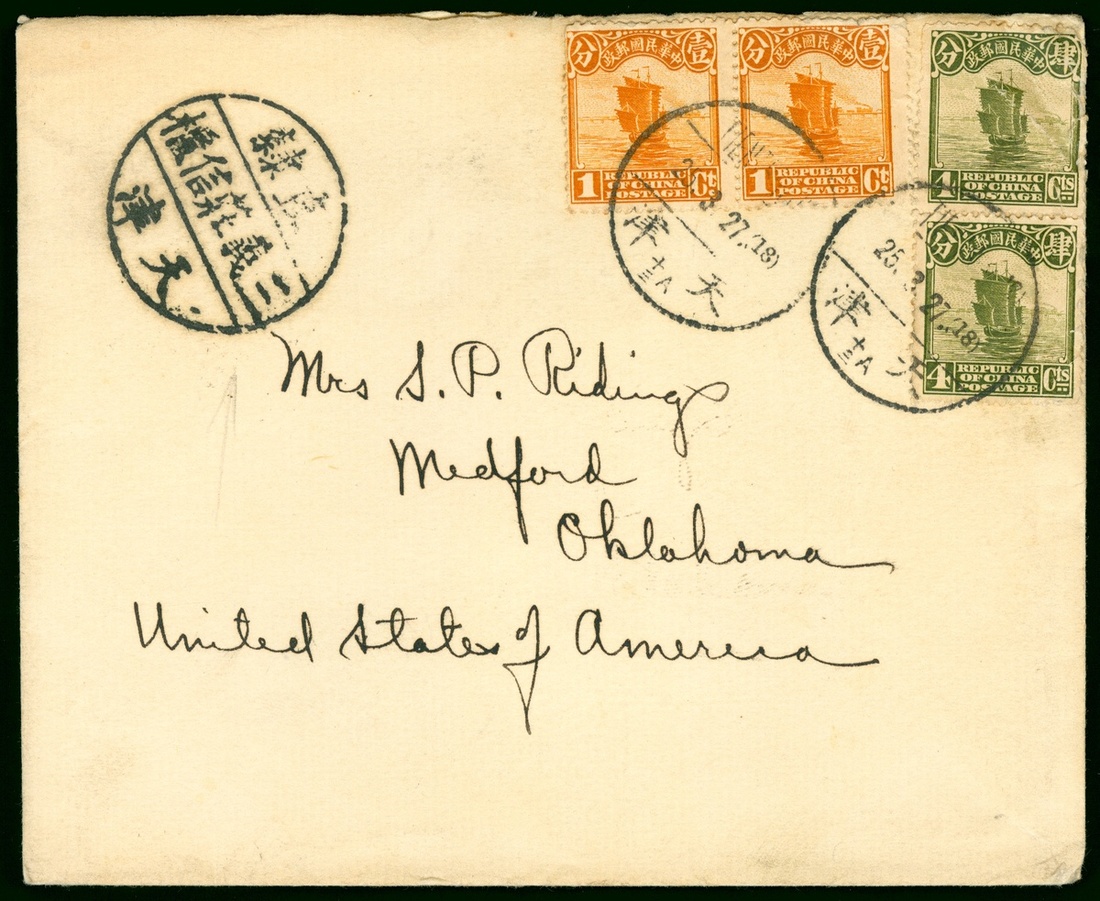 直隸
三義莊信櫃
天津
中華民國郵政
壹分
1 Ct
REPUBLIC
OF CHINA
POSTAGE
中華民國郵政
壹分
1 Ct
REPUBLIC
OF CHINA
POSTAGE
中華民國郵政
肆分
4 Cts
REPUBLIC
OF CHINA
POSTAGE
中華民國郵政
肆分
4 Cts
REPUBLIC
OF CHINA
POSTAGE
25.3.27.(18)
天津
25.3.27.(18)
天津
Mrs S. P. Ridings
Medford
Oklahoma
United States of America